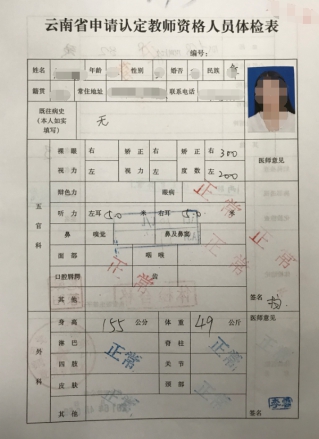 云南省申请认定教师资格人员体检表
编号：
姓名 年龄 性别 婚否 民族
籍贯 常住地址 联系电话
既往病史
（本人如实
填写）
无
裸眼 右 矫正 右 300 医师意见
视力 左 视力 左 度数 左 200
辩色力 眼病 正常
五官科
听力 左耳 5.0 米 右耳 5.0 米
鼻 嗅觉 鼻及鼻窦 正常 正常
面部 咽喉
正常
口腔唇腭 齿
其他 签名
身高 155 公分 体重 49 公斤 医师意见
外科
淋巴 正常 脊柱 正常
四肢 关节
皮肤 正常 颈部 正常
其他 签名 李雪